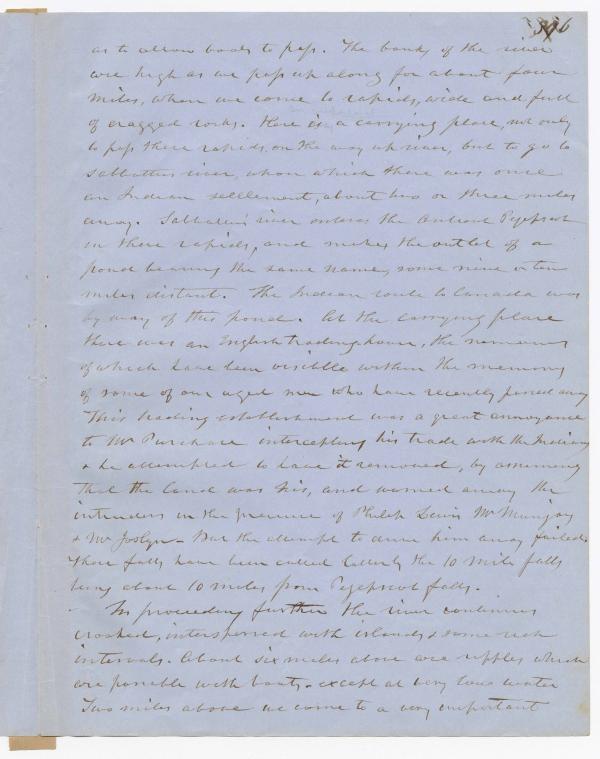 as to allow boats to pass. The banks of the river
are high as we pass up along for about four
miles, when we come to rapids, wide and full
of cragged rocks. Here is a carrying place, not only
to pass these rapids on the way up river, but to go to
Sabbattus river, upon which there was once
an Indian settlement, about two or three miles
away. river enters the Pejepscot
in these rapids, and makes the outlet of a
pond bearing the same name, some nine or ten
miles distant. The Indian route to Canada was
by way of this pond. At the carrying place
there was an English trading house, the remains
of which have been visible within the memory
of some of our aged men who have recently passed away
This trading establishment was a great annoyance
to Mr Purchase intercepting his trade with the Indians
& he attempted to have it removed, by assuming
that the land was his, and warned away the
intruders in the presence of Philip Lewis Mr Munjoy
& Mr Joslyn - But the attempt to drive him away failed.
These falls have been called latterly the 10 mile falls
being about 10 miles from Pejepscot falls.
In proceeding further the river continues
crooked, interspersed with islands & some rich
intervals. About six miles above are ripples which
are passible with boats - except at very low water
Two miles above we come to a very important